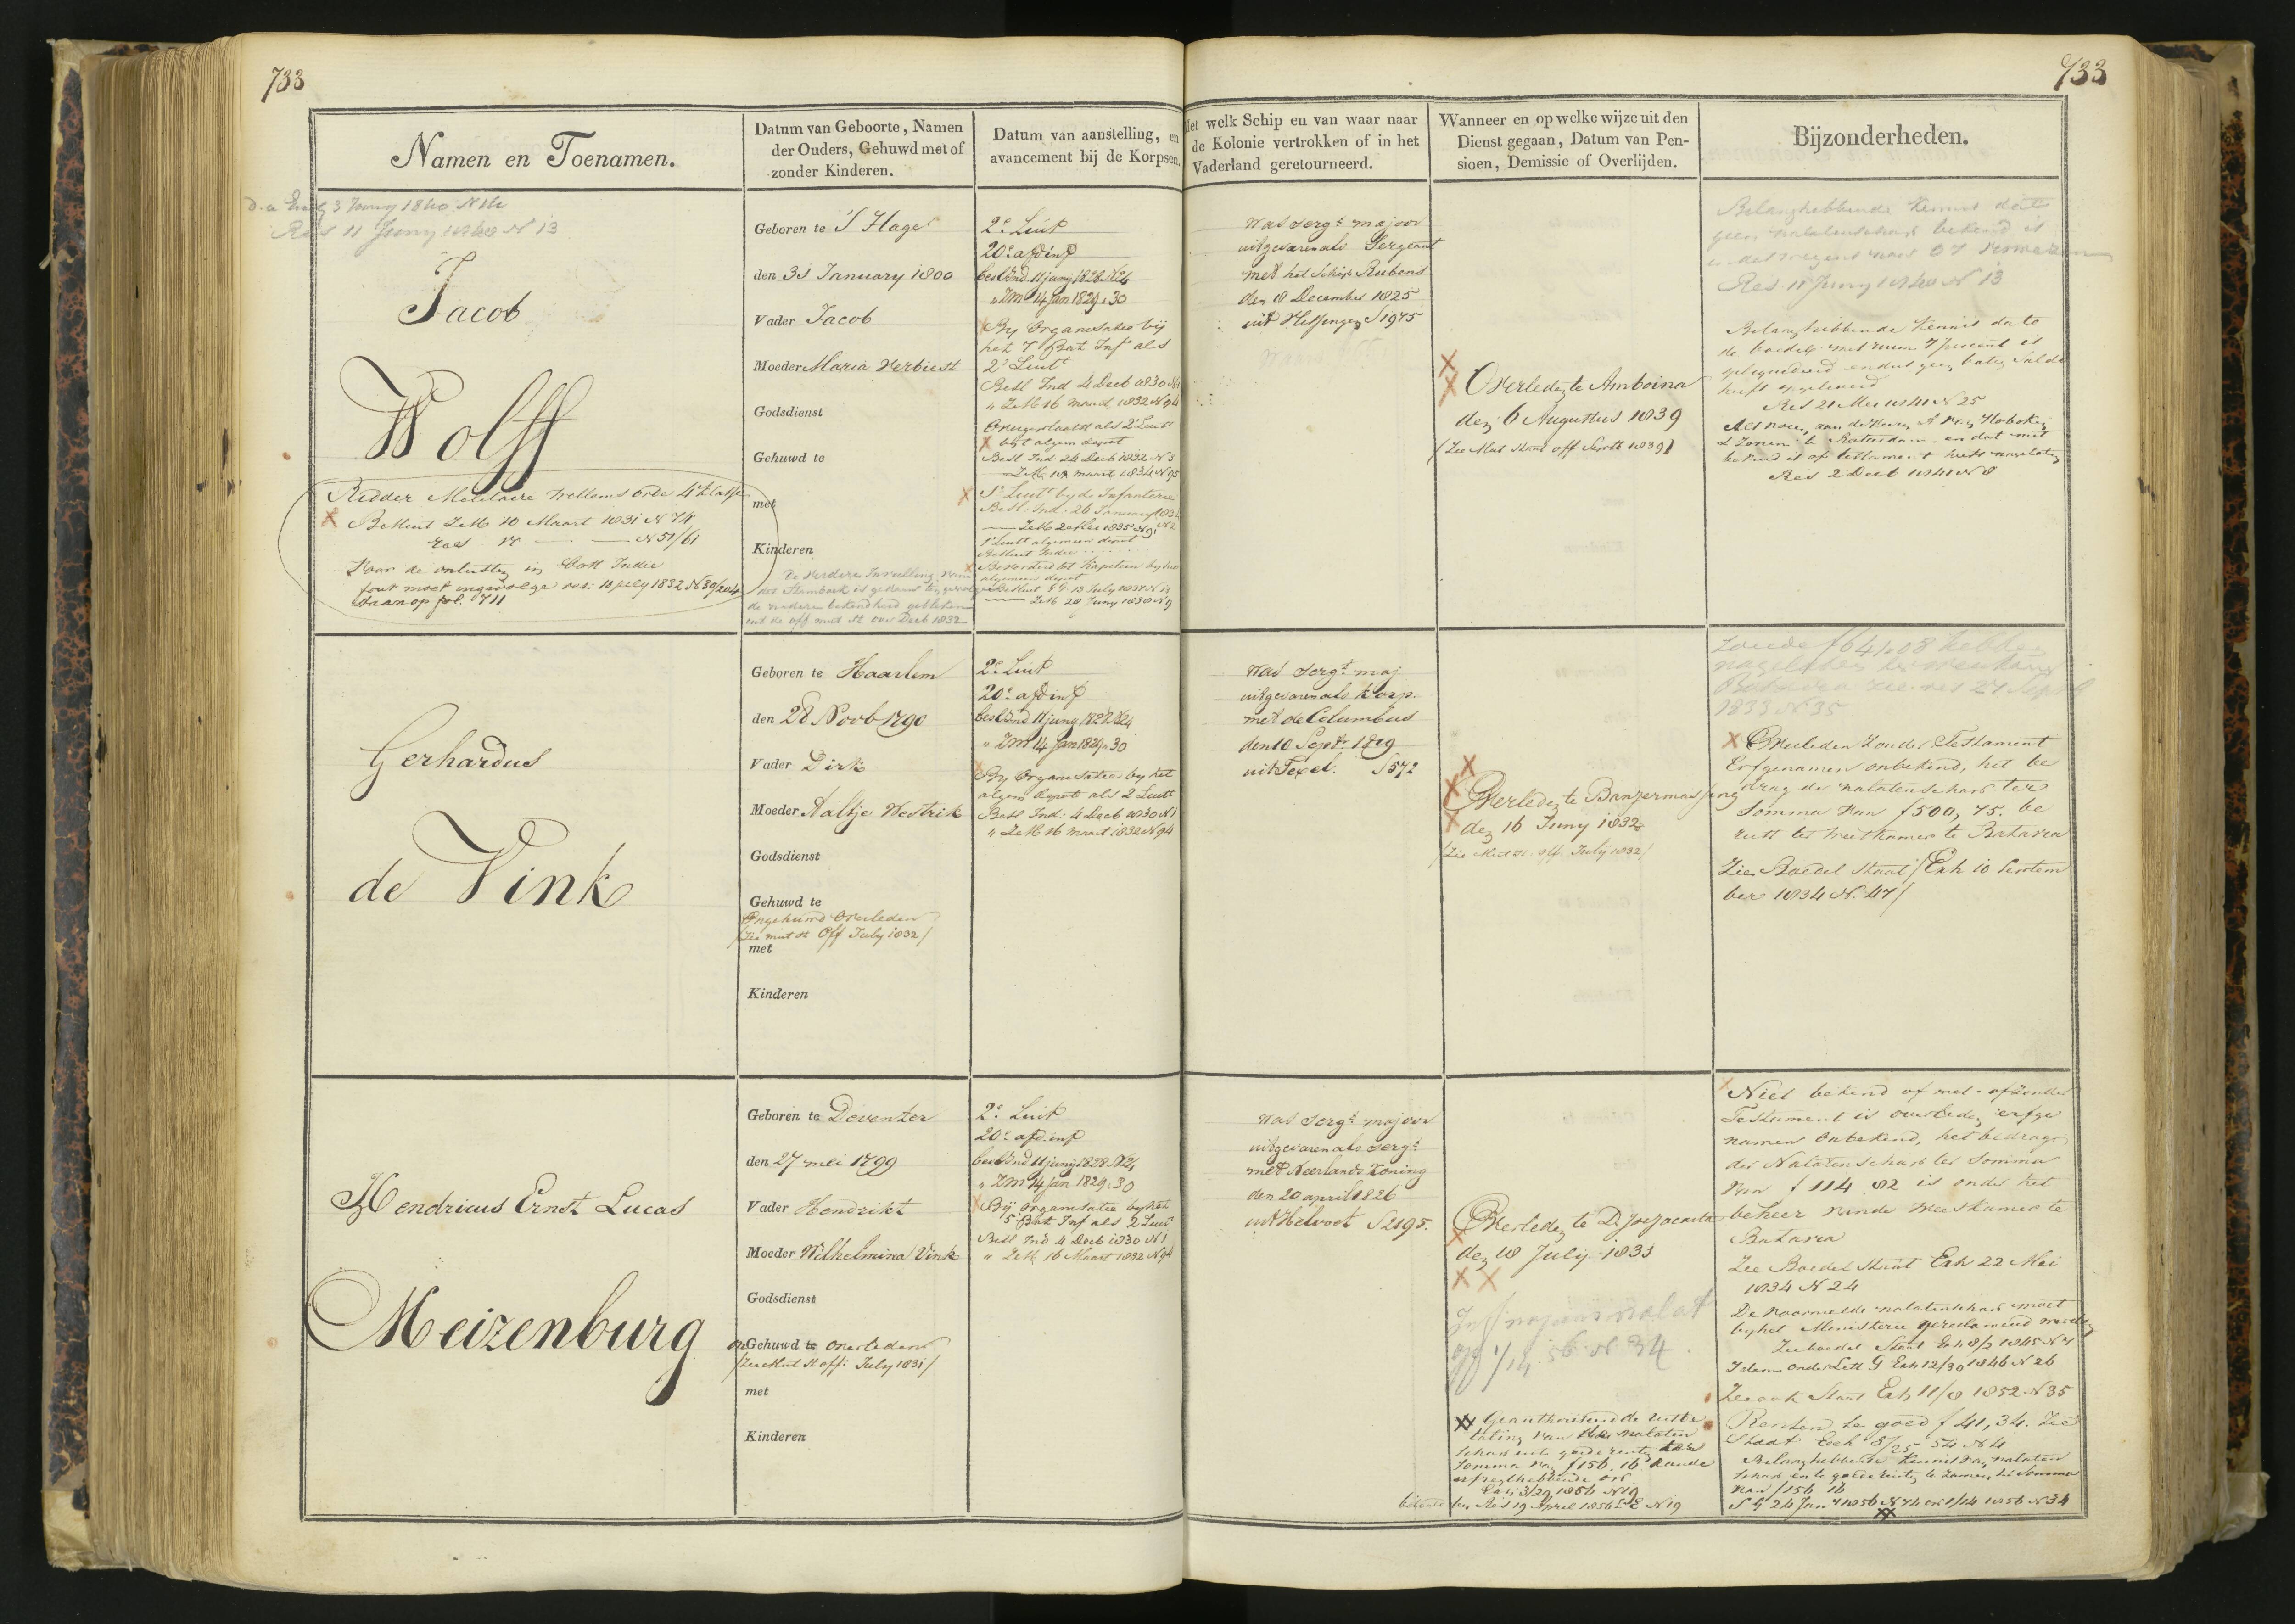 733
733
Namen en Toenamen.
Datum van Geboorte, Namen
der Ouders, Gehuwd met of
zonder Kinderen.
Datum van aanstelling, en
avancement bij de Korpsen.
Met welk Schip en van waar naar
de Kolonie vertrokken of in het
Vaderland geretourneerd.
Wanneer en op welke wijze uit den
Dienst gegaan, Datum van Pen-
sioen, Demissie of Overlijden.
Bijzonderheden.
Res 11 Juny 1840 N 13
Jacob
Wolff
Ridder Militaire Willems Orde 4e Klasse
Besluit ZM 10 Maart 1831 N 74
N 51/61
Voor de onlusten in Oost Indie
fout moet ingevolge res: 10 july 1832 N 30/204
staan op fol. 711
Geboren te 'S Hage
den 31 January 1800
Vader Jacob
Moeder Maria Verbiest
Godsdienst
Gehuwd te
met
Kinderen
2e Luit
20e afd inf
besl Ind 11 juny 1828 N 24
" ZM 14 Jan 1829 " 30
By Organisatie bij
het 7 Bat Inf als
2e Luit
Besl Ind 4 Decb 1830 N 1
" ZM 16 maart 1832 N 94
Overgeplaatst als 2e Luit
by t algem depot
Besl Ind 24 Decb 1832 N 3
1e Luit by de Infanterie
Besl Ind 26 January 1834
1e Luit algemeen depot
Besluit Indie
Bevorderd tot Kapitein by het
algemeen depot
Besluit GG 13 July 1837 N 13
ZM 28 Juny 1838 N 9
was sergt majoor
uitgevaren als Sergeant
met het Schip Rubens
den 8 December 1825
uit Vlissingen S 1975
Overleden te Amboina
den 6 Augustus 1839
(Zie Mut Staat off Septb 1839)
Belanghebbende kennis dat
geen nalatenschap bekend is
Res 11 Juny 1840 N 13
Belanghebbende kennis dat
de boedel met ruim 7 percent is
heeft opgeleverd
Res 21 Mei 1841 N 25
Res 2 Decb 1841 N 8
Gerhardus
de Vink
Geboren te Haarlem
den 28 Novb 1790
Vader Dirk
Moeder Aaltje Westrik
Godsdienst
Gehuwd te
Ongehuwd Overleden
(Zie mut st Off July 1832)
met
Kinderen
2e Luit
20e afd inf
besl Ind 11 juny 1828 N 24
" ZM 14 Jan 1829 " 30
By Organisatie by het
algem depot als 2 Luit
Besl Ind 4 Decb 1830 N 1
" ZM 16 maart 1832 N 94
was sergt maj.
uitgevaren als korp.
met de Columbus
den 10 Septr 1819
uit Texel. S 572
Overleden te Banjermassing
den 16 Juny 1832
(Zie Mut st. off. July 1832)
1833 N 35
Overleden zonder Testament
Erfgenamen onbekend, het be
drag der nalatenschap ter
Somma van f 500,75. be
rust ter weeskamer te Batavia
Zie Boedel Staat (Exh 10 Septem
ber 1834 N. 47)
Hendricus Ernst Lucas
Meizenburg
Geboren te Deventer
den 27 mei 1799
Vader Hendrikt
Moeder Wilhelmina Vink
Godsdienst
onGehuwd te overleden
(Zie Mut St off: July 1831)
met
Kinderen
2e Luit
20e afd. inf
besl Ind 11 juny 1828 N 24
" ZM 14 Jan 1829 " 30
Bij organisatie by het
5 Bat Inf als 2 Luit
Besl Ind 4 Decb 1830 N 1
" ZM 16 Maart 1832 N 94
was sergt majoor
uitgevaren als sergt
met Neerlands Koning
den 20 april 1826
uit Helvoet S 2195.
Overleden te Djocjocarta
den 18 July 1831
Geauthoriseerd de uitbe
taling van de nalaten
somma van f 156.16 aan de
Exh 3/29 1856 N 19
Res 19 April 1856 N 19
Niet bekend of met of zonder
Testament is overleden erfge
namen onbekend, het bedrag
der Nalatenschap ter Somma
van f 114 82 is onder het
beheer van de weeskamer te
Batavia
Zie Boedel Staat Exh 22 Mei
1834 N 24
De voormelde nalatenschap moet
by het Ministerie gereclameerd worden
Idem onder Lett G Exh 12/30 1846 N 26
Zie ook Staat Exh 11/8 1852 N 35
Renten te goed f 41,34. Zie
Staat Exh 5/25 54 N 4
Belanghebbende kennis van nalaten
schap en te goede renten te zamen ter somma
van f 156 16